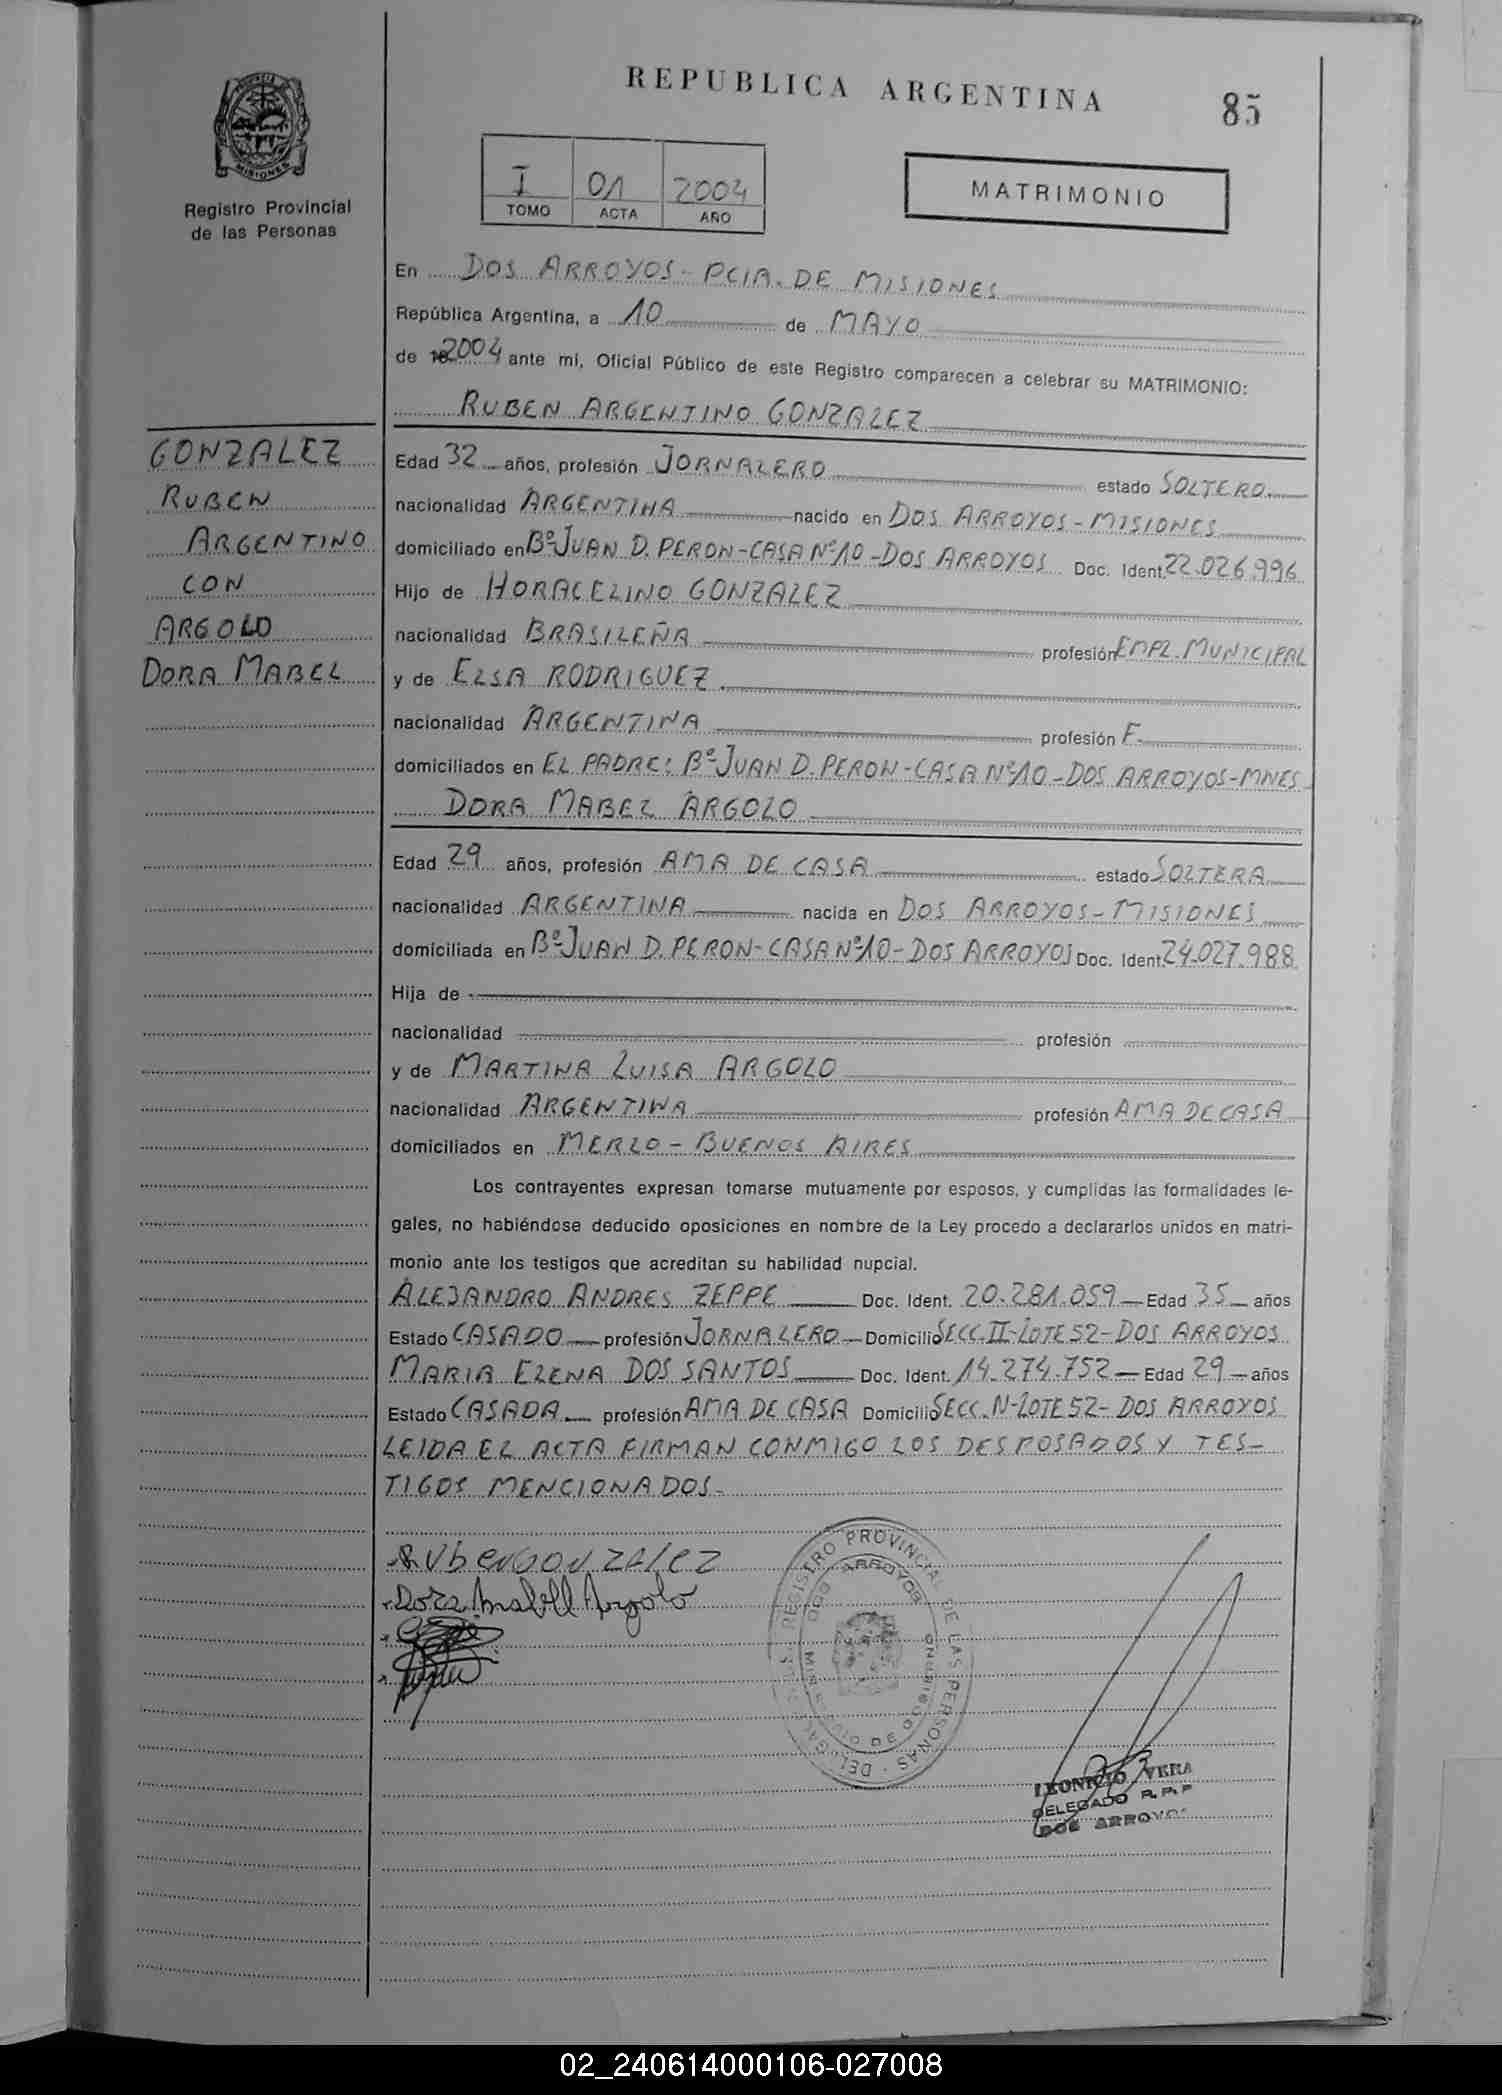 REPUBLICA ARGENTINA
85
PROVINCIA
MISIONES
Registro Provincial
de las Personas
I 01 2004
TOMO ACTA AÑO
MATRIMONIO
En DOS ARROYOS - PCIA. DE MISIONES
República Argentina, a 10 de MAYO
de 2004 ante mí, Oficial Público de este Registro comparecen a celebrar su MATRIMONIO:
RUBEN ARGENTINO GONZALEZ
GONZALEZ
RUBEN
ARGENTINO
CON
ARGOLO
DORA MABEL
Edad 32 años, profesión JORNALERO estado SOLTERO
nacionalidad ARGENTINA nacido en DOS ARROYOS - MISIONES
domiciliado en Bº JUAN D. PERON - CASA Nº 10 - DOS ARROYOS Doc. Ident. 22.026.996
Hijo de HORACELINO GONZALEZ
nacionalidad BRASILEÑA profesión EMPL. MUNICIPAL
y de ELSA RODRIGUEZ
nacionalidad ARGENTINA profesión F.
domiciliados en EL PADRE: Bº JUAN D. PERON - CASA Nº 10 - DOS ARROYOS - MNES
DORA MABEL ARGOLO
Edad 29 años, profesión AMA DE CASA estado SOLTERA
nacionalidad ARGENTINA nacida en DOS ARROYOS - MISIONES
domiciliada en Bº JUAN D. PERON - CASA Nº 10 - DOS ARROYOS Doc. Ident. 24.027.988
Hija de
nacionalidad profesión
y de MARTINA LUISA ARGOLO
nacionalidad ARGENTINA profesión AMA DE CASA
domiciliados en MERLO - BUENOS AIRES
Los contrayentes expresan tomarse mutuamente por esposos, y cumplidas las formalidades le-
gales, no habiéndose deducido oposiciones en nombre de la Ley procedo a declararlos unidos en matri-
monio ante los testigos que acreditan su habilidad nupcial.
ALEJANDRO ANDRES ZEPPE Doc. Ident. 20.281.059 Edad 35 años
Estado CASADO profesión JORNALERO Domicilio SECC. II - LOTE 52 - DOS ARROYOS
MARIA ELENA DOS SANTOS Doc. Ident. 14.274.752 Edad 29 años
Estado CASADA profesión AMA DE CASA Domicilio SECC. N - LOTE 52 - DOS ARROYOS
LEIDA EL ACTA FIRMAN CONMIGO LOS DESPOSADOS Y TES-
TIGOS MENCIONADOS.-
Ruben GONZALEZ
Dora Mabell Argolo
REGISTRO PROVINCIAL DE LAS PERSONAS
DOS ARROYOS
LEONICIO VERA
DELEGADO R.P.P
DOS ARROYOS
02_240614000106-027008